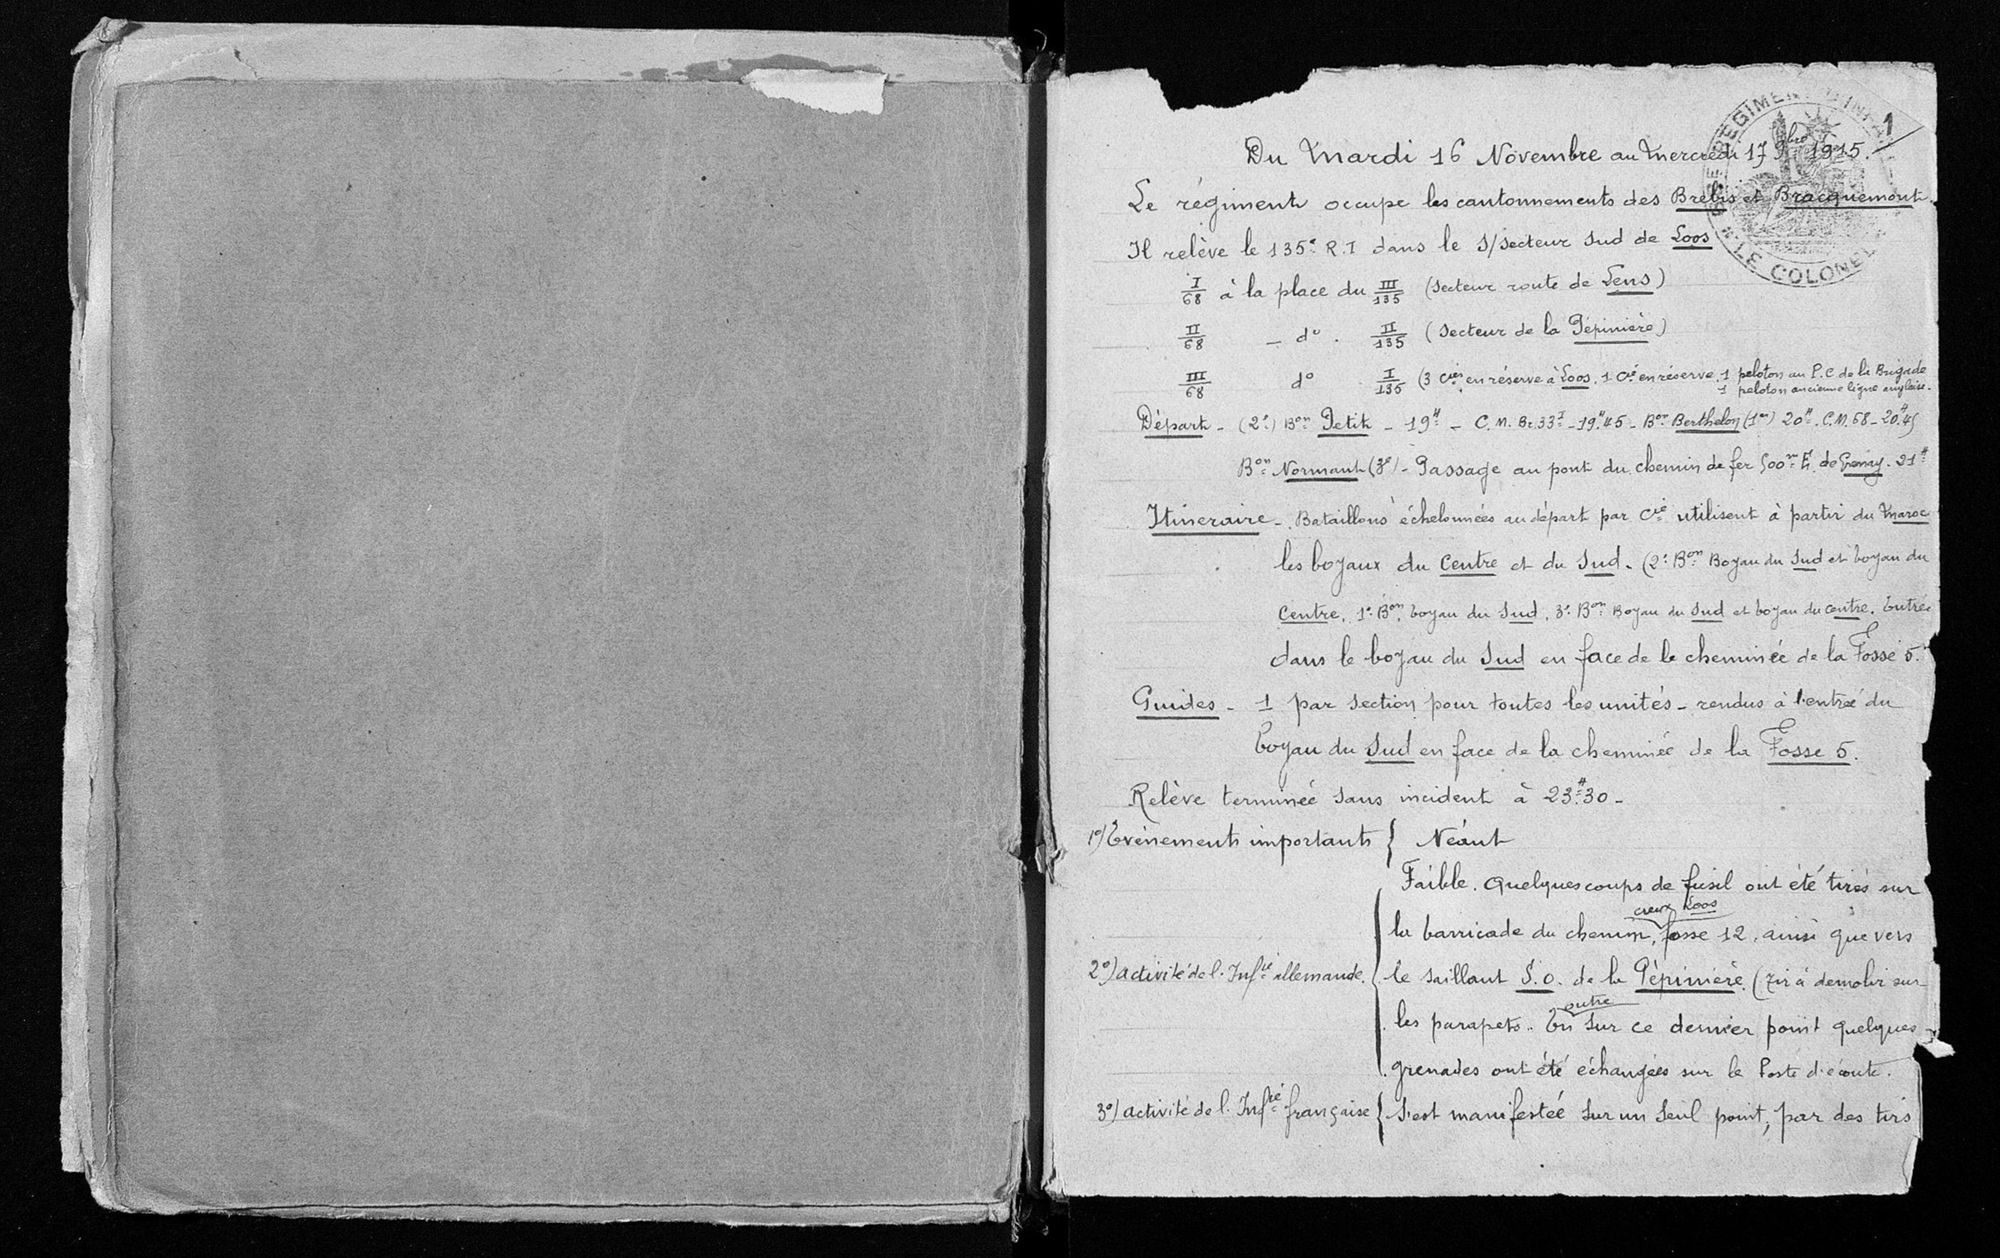 1
Du Mardi 16 Novembre au Mercredi 17 9bre 1915.
Le régiment occupe les cantonnements des Brebis et Bracquemont.
Il relève le 135e R.I dans le s/secteur Sud de Loos
I/68 à la place du III/135 (secteur route de Lens)
II/68 - do. II/135 (secteur de la Pépinière)
III/68 do I/135 (3 Cies en réserve à Loos. 1 Cie en réserve. 1 peloton au P.C de la Brigade
1 peloton ancienne ligne anglaise.
Départ - (2e) Bon Petit - 19H - C.M. Br. 33I - 19H45 - Bon Berthelon (1er) 20H. C.M. 68 - 20H45
Bon Normant (3e) - Passage au pont du chemin de fer 500m E. de Grenay. 21H
Itineraire - Bataillons échelonnées au départ par Cie utilisent à partir du Maroc
les boyaux du Centre et du Sud. (2e Bon Boyau du Sud et boyau du
Centre, 1e Bon, boyau du Sud, 3e Bon Boyau du Sud et boyau du centre. Entrée
dans le boyau du Sud en face de la cheminée de la Fosse 5.
Guides - 1 par section pour toutes les unités - rendus à l'entrée du
boyau du Sud en face de la cheminée de la Fosse 5.
Relève terminée sans incident à 23H30 -
1o/ Evénements importants { Néant
Faible. Quelques coups de fusil ont été tirés sur
creux Loos
la barricade du chemin, fosse 12, ainsi que vers
2o/ activité de l'Infie allemande. { le saillant S.O. de la Pépinière (tir à démolir sur
outre
les parapets. En sur ce dernier point quelques
grenades ont été échangées sur le Poste d'écoute.
3o/ activité de l'Infie française { s'est manifestée sur un seul point, par des tirs
REGIMENT D'INFA
LE COLONEL